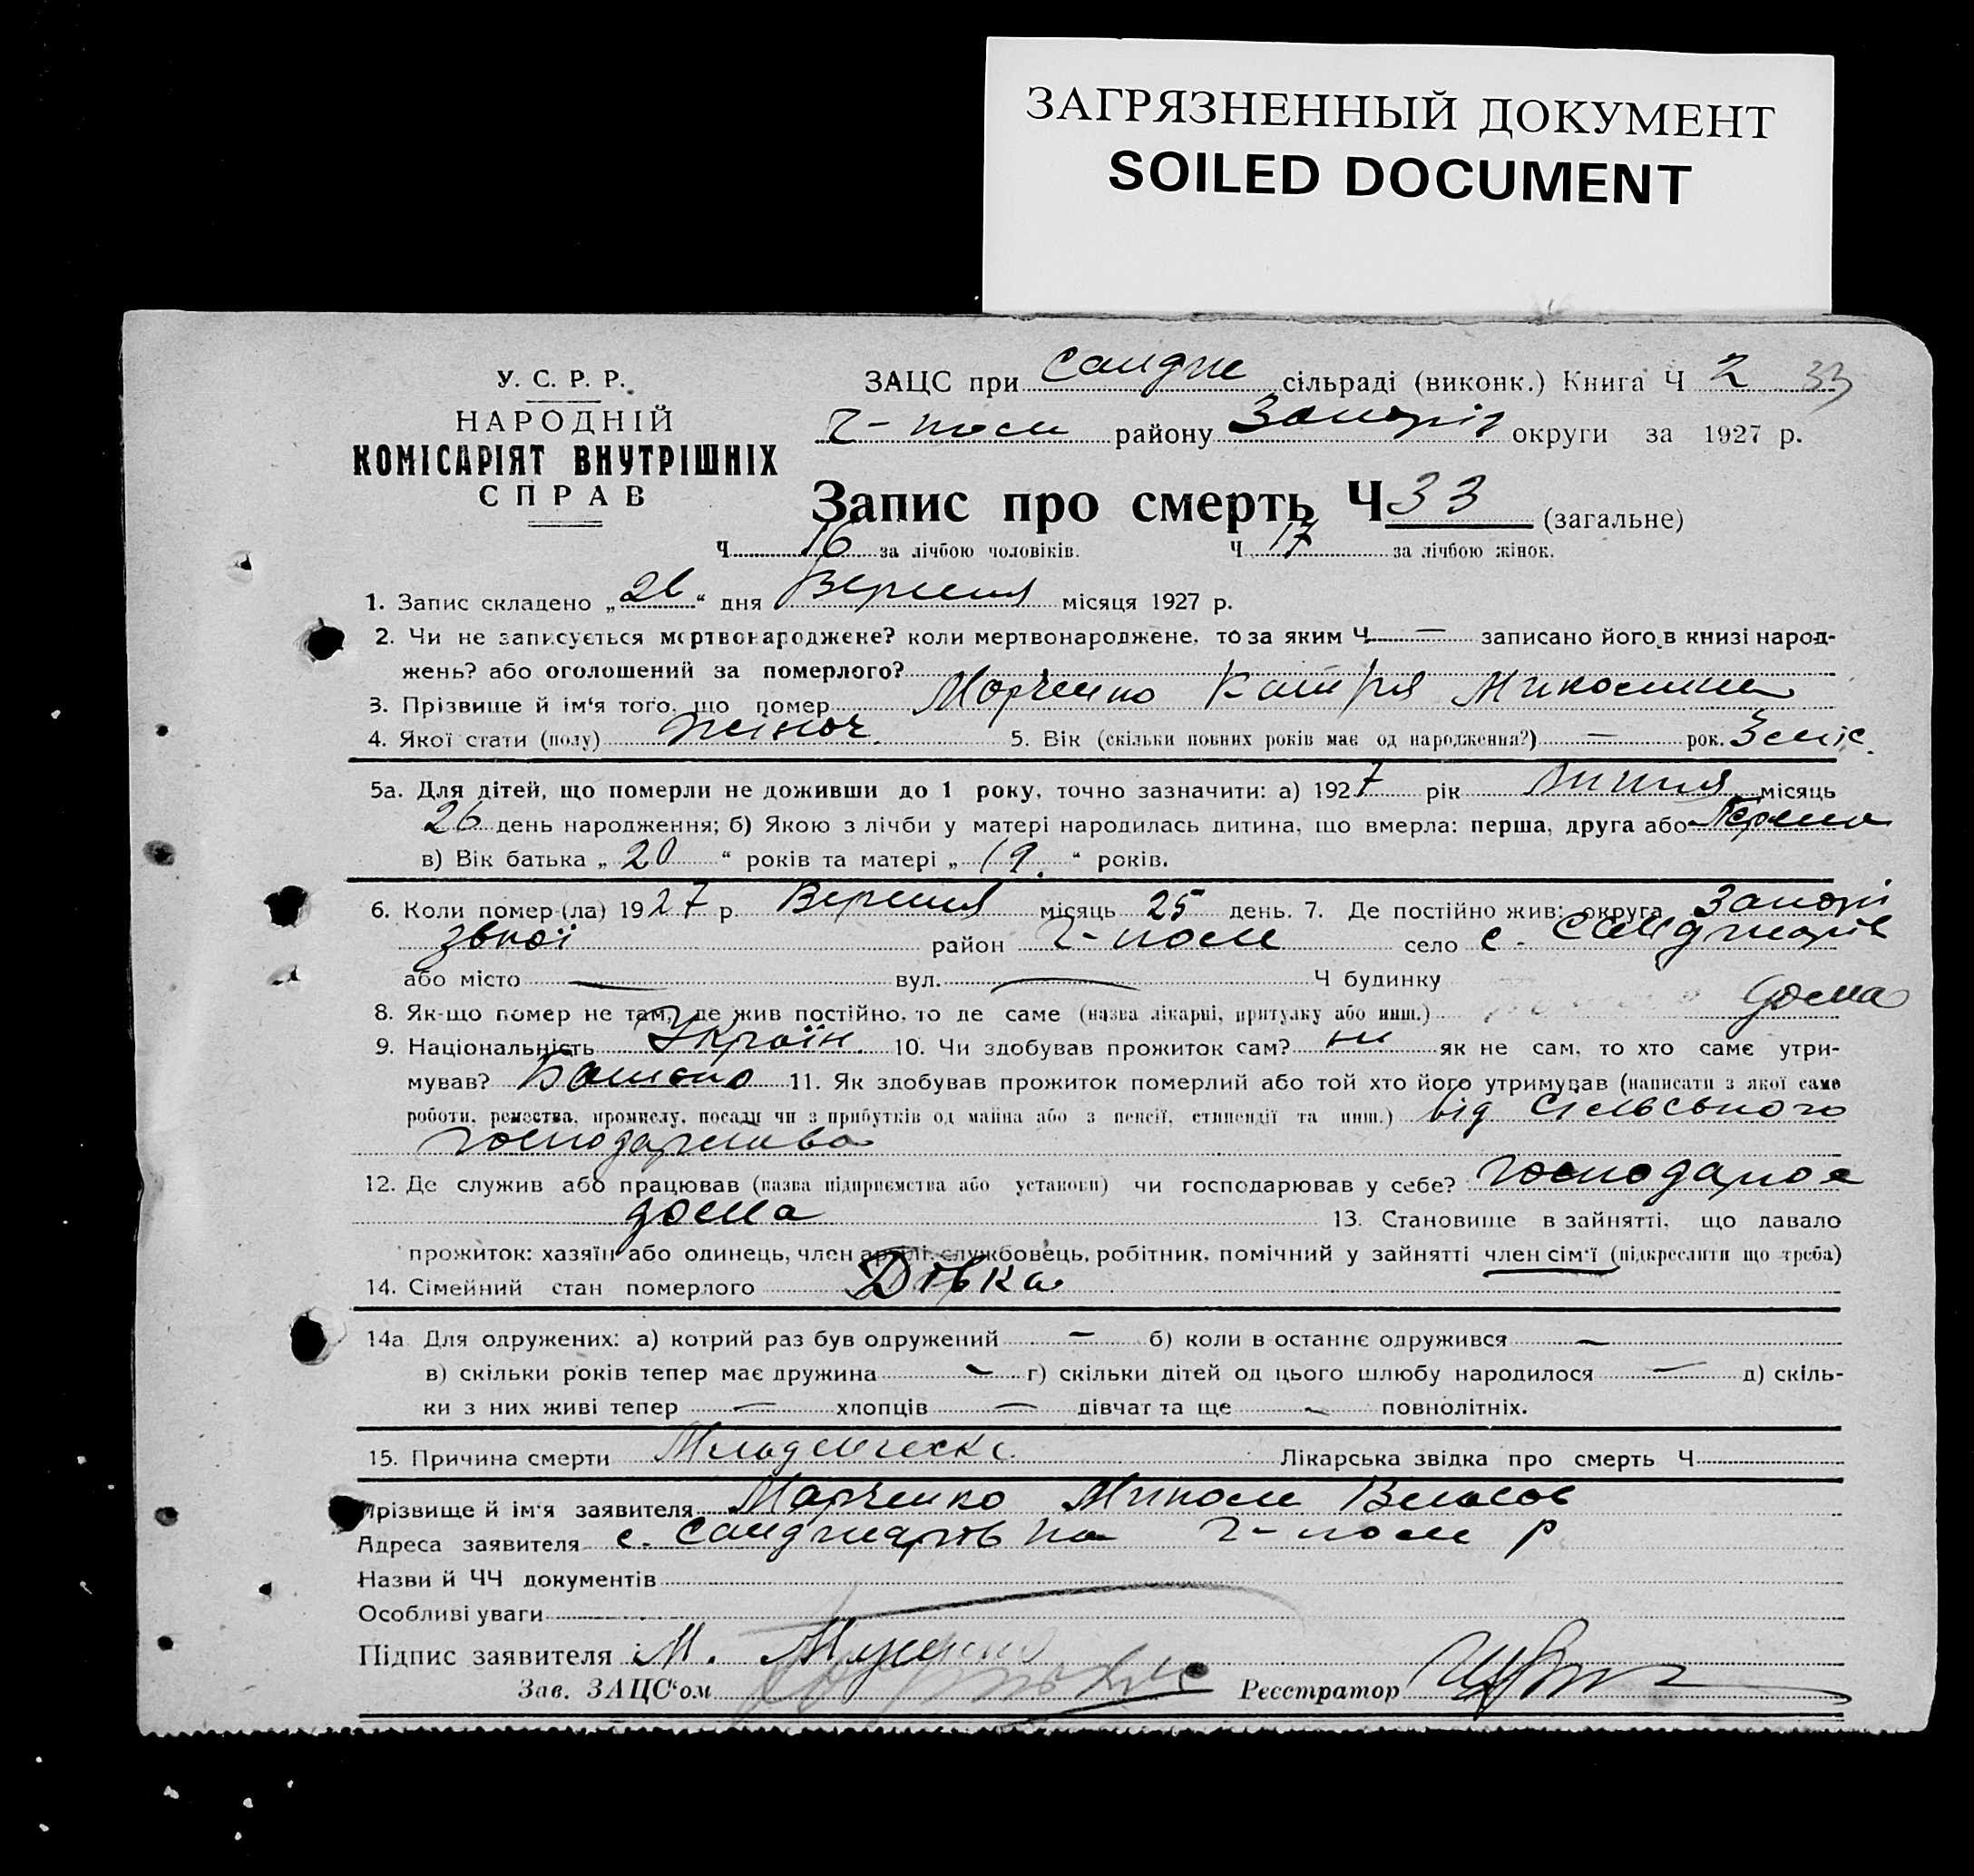 ЗАГРЯЗНЕННЫЙ ДОКУМЕНТ
SOILED DOCUMENT
У. С. Р. Р.
НАРОДНІЙ
КОМІСАРІЯТ ВНУТРІШНІХ
СПРАВ
ЗАЦС при Сандж сільраді (виконк.) Книга Ч 2 33
Г-поле району Запоріз округи за 1927 р.
Запис про смерть Ч 33 (загальне)
Ч 16 за лічбою чоловіків. Ч 17 за лічбою жінок.
1. Запис складено „26“ дня Вересня місяця 1927 р.
2. Чи не записується мертвонароджене? коли мертвонароджене, то за яким Ч — записано його в книзі народ-
жень? або оголошений за померлого?
3. Прізвище й ім‘я того, що помер Марченко Катря Миколина
4. Якої стати (полу) жіноч. 5. Вік (скільки повних років має од народження?) — рок. 3 міс.
5а. Для дітей, що померли не доживши до 1 року, точно зазначити: а) 1927 рік Липня місяць
26 день народження; б) Якою з лічби у матері народилась дитина, що вмерла: перша, друга або Перша
в) Вік батька „20“ років та матері „19.“ років.
6. Коли помер (ла) 1927 р. Вересня місяць 25 день. 7. Де постійно жив: округа Запорі
звкої район Г-поле село с. Санджарів
або місто — вул. — Ч будинку
8. Як-що помер не там, де жив постійно, то де саме (назва лікарні, притулку або инш.) дома
9. Національність Україн. 10. Чи здобував прожиток сам? ні як не сам, то хто саме утри-
мував? Батько 11. Як здобував прожиток померлий або той хто його утримував (написати з якої саме
роботи, ремества, промислу, посади чи з прибутків од майна або з пенсії, стипендії та инш.) від сільського
господарства
12. Де служив або працював (назва підприємства або установи) чи господарював у себе? господарює
дома 13. Становище в зайнятті, що давало
прожиток: хазяїн або одинець, член артілі, службовець, робітник, помічний у зайнятті член сім‘ї (підкреслити що треба)
14. Сімейний стан померлого Дівка
14а Для одружених: а) котрий раз був одружений — б) коли в останнє одружився —
в) скільки років тепер має дружина — г) скільки дітей од цього шлюбу народилося — д) скіль-
ки з них живі тепер — хлопців — дівчат та ще — повнолітніх.
15. Причина смерти Младенческ. Лікарська звідка про смерть Ч
Прізвище й ім‘я заявителя Марченко Микола Власов
Адреса заявителя с. Санджарівка Г-поле р
Назви й ЧЧ документів
Особливі уваги
Підпис заявителя М.
Зав. ЗАЦС‘ом Реєстратор